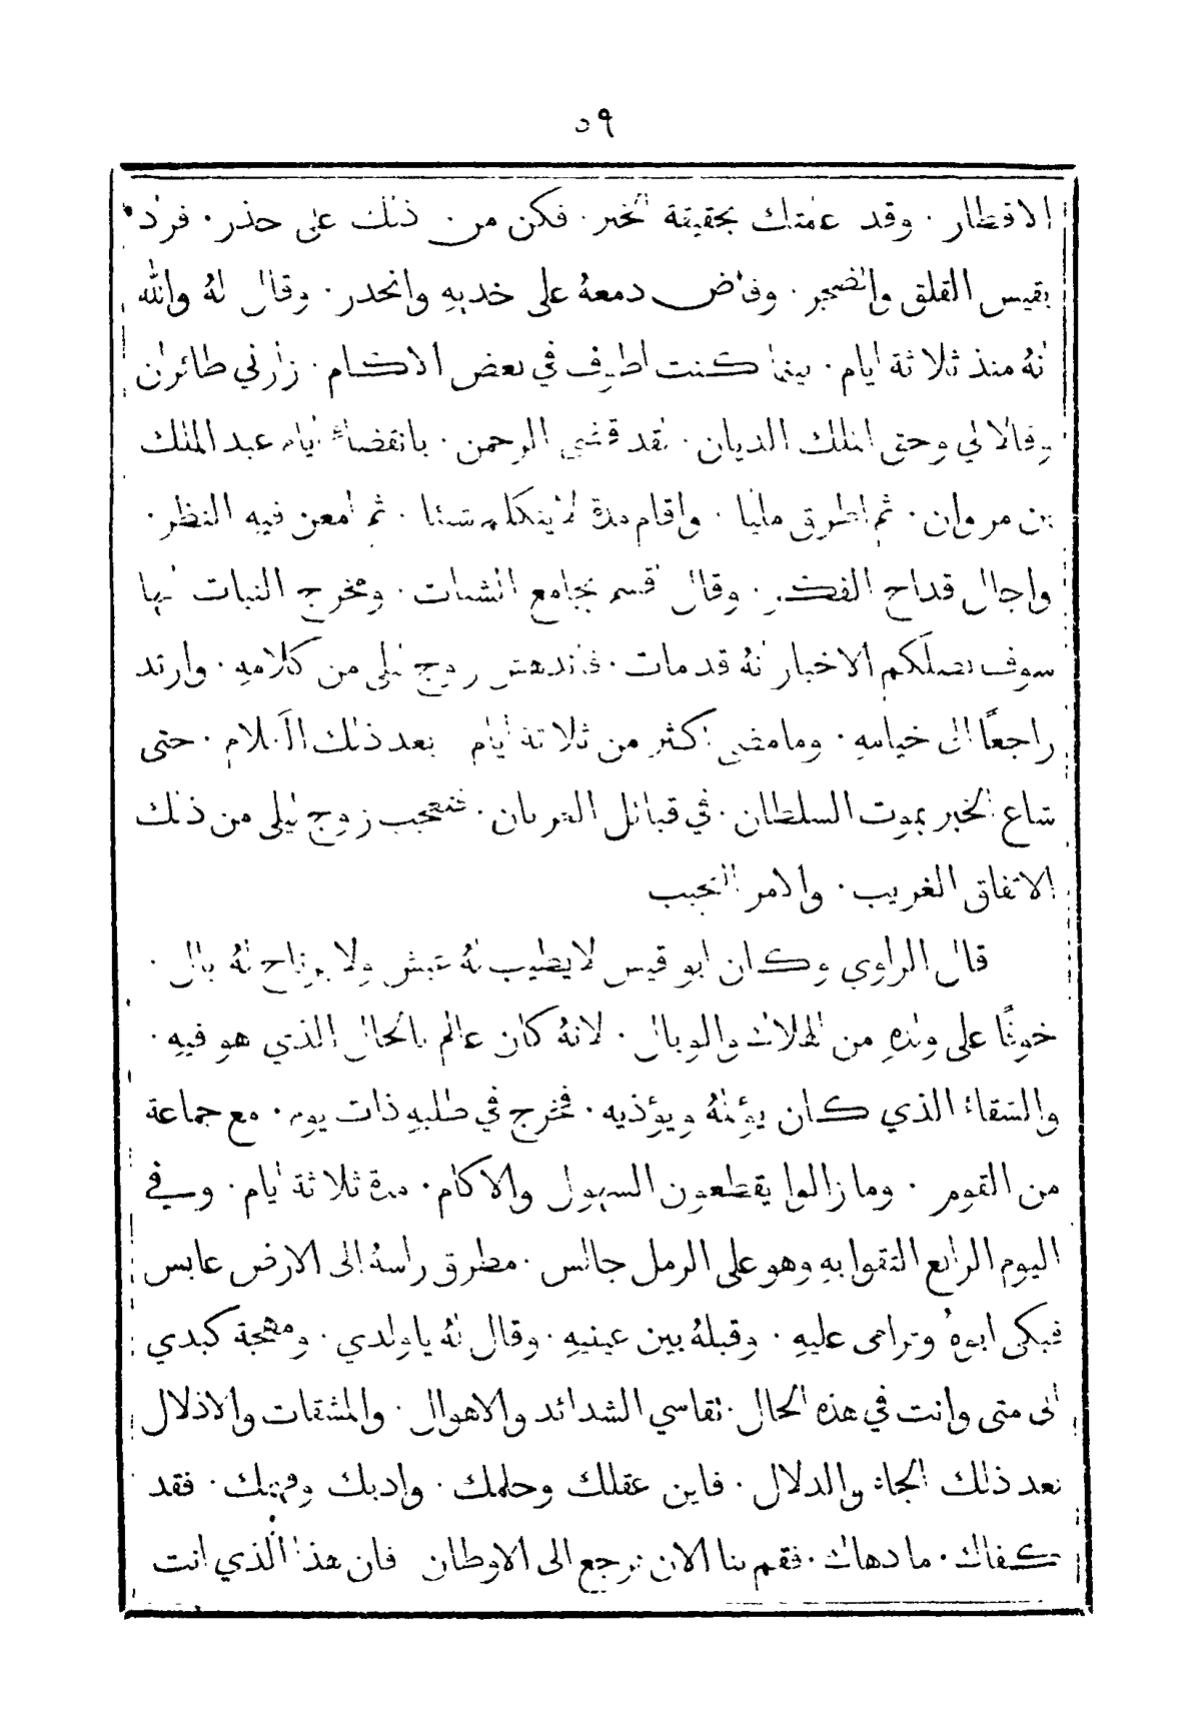 ٥٩
الاقطار · وقد علمتك بحقيقة الخبر · فكن من ذلك على حذر · فزاد
بقيس القلق والضجر · وفاض دمعهُ على خديهِ وانحدر · وقال لهُ والله
انهُ منذ ثلاثة ايام · بينما كنت اطوف في بعض الاكام · زارني طائران
وقالا لي وحق الملك الديان · لقد قضى الرحمن · بانقضاء ايام عبد الملك
بن مروان · ثم اطرق مليا · واقام مدة لا يتكلم شيئا · ثم امعن فيه النظر ·
واجال قداح الفكر · وقال اقسم بجامع الشتات · ومخرج النبات انها
سوف تصلكم الاخبار انهُ قد مات · فاندهش زوج ليلى من كلامهِ · وارتد
راجعًا الى خيامهِ · وما مضى اكثر من ثلاثة ايام بعد ذلك الكلام · حتى
شاع الخبر بموت السلطان · في قبائل العربان · فتعجب زوج ليلى من ذلك
الاتفاق الغريب · والامر العجيب
قال الراوي وكان ابو قيس لا يطيب لهُ عيش ولا يرتاح لهُ بال ·
خوفًا على ولدهِ من الهلاك والوبال · لانهُ كان عالم بالحال الذي هو فيهِ ·
والشقاء الذي كان يؤلمهُ ويؤذيه · فخرج في طلبهِ ذات يوم · مع جماعة
من القوم · وما زالوا يقطعون السهول والاكام · مدة ثلاثة ايام · وفي
اليوم الرابع التقوا بهِ وهو على الرمل جالس · مطرق راسهُ الى الارض عابس
فبكى ابوهُ وترامى عليهِ · وقبلهُ بين عينيهِ · وقال لهُ يا ولدي · ومهجة كبدي
الى متى وانت في هذه الحال · تقاسي الشدائد والاهوال · والمشقات والاذلال
بعد ذلك الجاه والدلال · فاين عقلك وحلمك · وادبك وفهمك · فقد
كفاك · ما دهاك · فقم بنا الان نرجع الى الاوطان فان هذا الذي انت